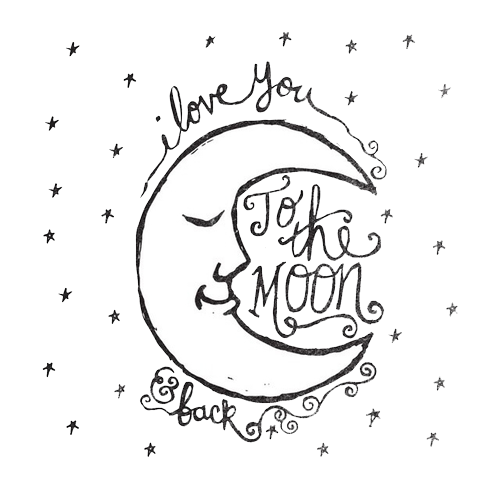 i love you
To
the
MOON
& back